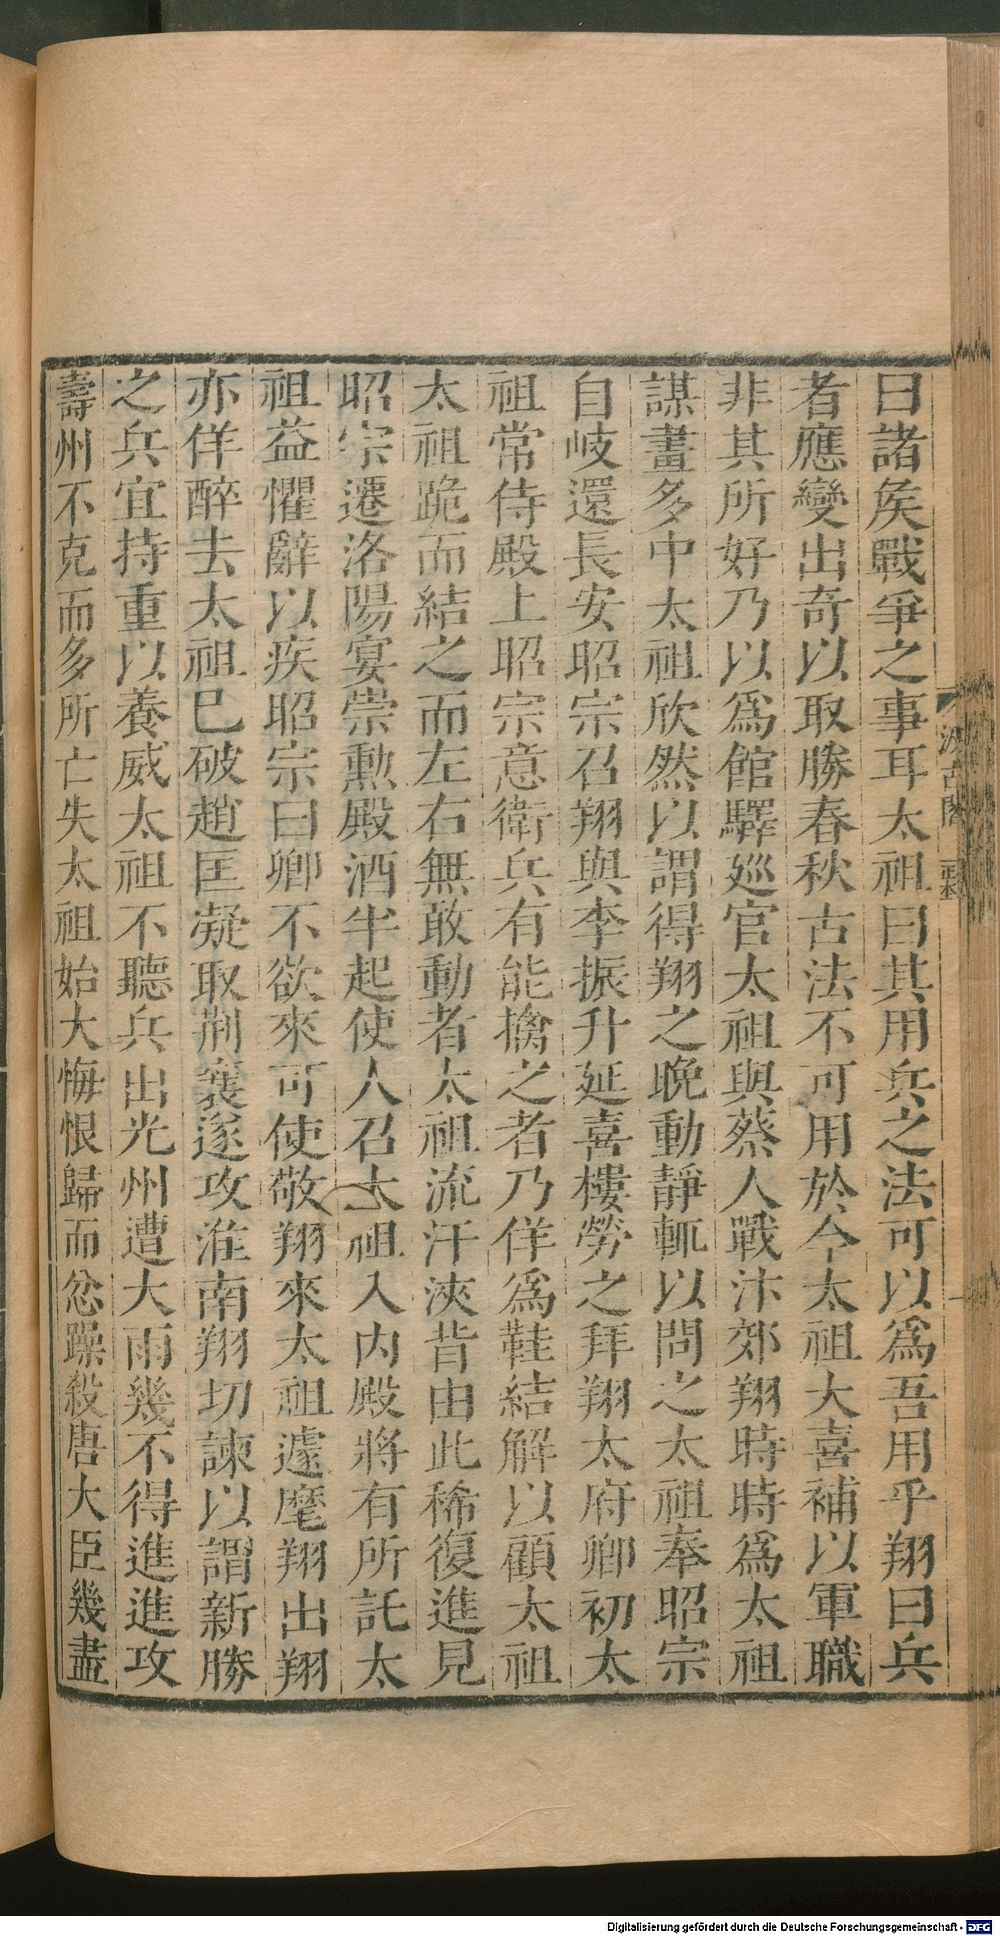 曰諸矦戰爭之事耳太祖曰其用兵之法可以爲吾用乎翔曰兵
者應變出奇以取勝春秋古法不可用於今太祖大喜補以軍職
非其所好乃以爲館驛廵官太祖與蔡人戰汴郊翔時時爲太祖
謀畫多中太祖欣然以謂得翔之晚動靜輒以問之太祖奉昭宗
自岐還長安昭宗召翔與李振升延喜樓勞之拜翔太府卿初太
祖常侍殿上昭宗意衛兵有能擒之者乃佯爲鞋結解以顧太祖
太祖跪而結之而左右無敢動者太祖流汗浹背由此稀復進見
昭宗遷洛陽宴崇勲殿酒半起使人召太祖入内殿將有所託太
祖益懼辭以疾昭宗曰卿不欲來可使敬翔來太祖遽麾翔出翔
亦佯醉去太祖已破趙匡凝取荆襄遂攻淮南翔切諫以謂新勝
之兵宜持重以養威太祖不聽兵出光州遭大雨幾不得進進攻
壽州不克而多所亡失太祖始大悔恨歸而忿躁殺唐大臣幾盡
汲古閣
Digitalisierung gefördert durch die Deutsche Forschungsgemeinschaft - DFG